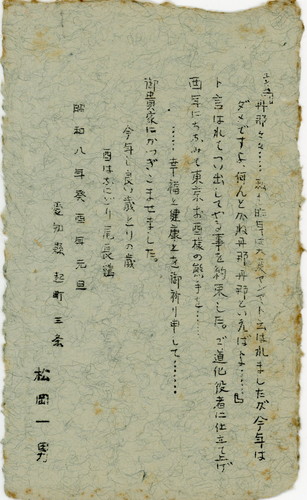 丹那さま……私も昨年は八釜ヤンデト云はれましたが今年は
ダメですよ、何んとかね丹那丹那といえばよ……』
ト言はれてつい出してやる事を約束した。ご道化役者に仕立て上げ
酉年にちなみて東京お酉様の熊手を……
御貴家にかつぎこませました。
……幸福と健康とを御祈り申して……
今年も良い歳とりの歳
酉はおにどり尾長鶏
昭和八年癸酉年元旦
愛知縣起町三条
松岡一男